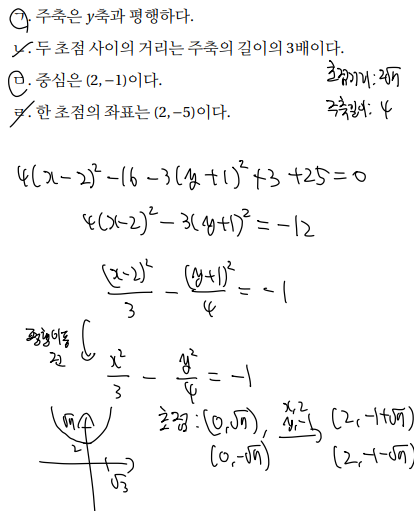 ㄱ. 주축은 y축과 평행하다.
ㄴ. 두 초점 사이의 거리는 주축의 길이의 3배이다.
ㄷ. 중심은 (2, −1)이다.
ㄹ. 한 초점의 좌표는 (2, −5)이다.
초점거리: 2√7
주축길이: 4
4(x−2)² −16 −3(y+1)² +3 +25 = 0
4(x−2)² − 3(y+1)² = −12
(x−2)²/3 − (y+1)²/4 = −1
평행이동 전
x²/3 − y²/4 = −1
√7
2
√3
초점: (0, √7), (0, −√7)
x, 2
y, −1
(2, −1+√7)
(2, −1−√7)